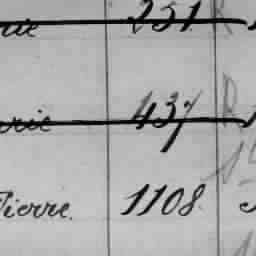 rie 231
arie 437
Pierre. 1108.